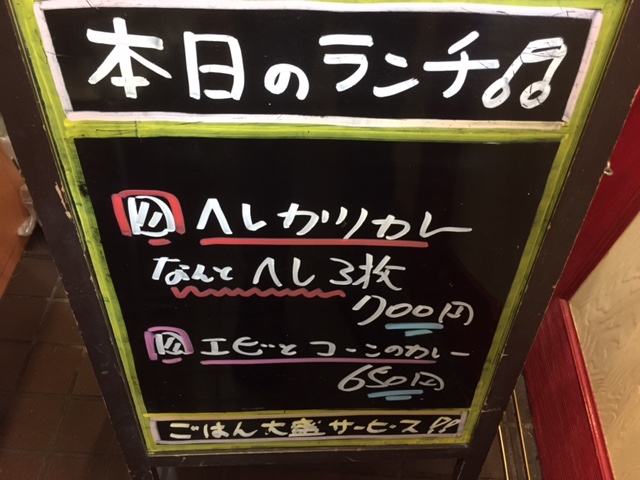 本日のランチ♫
ヘレカツカレー
なんとヘレ3枚
700円
エビとコーンのカレー
650円
ごはん大盛サービス!!